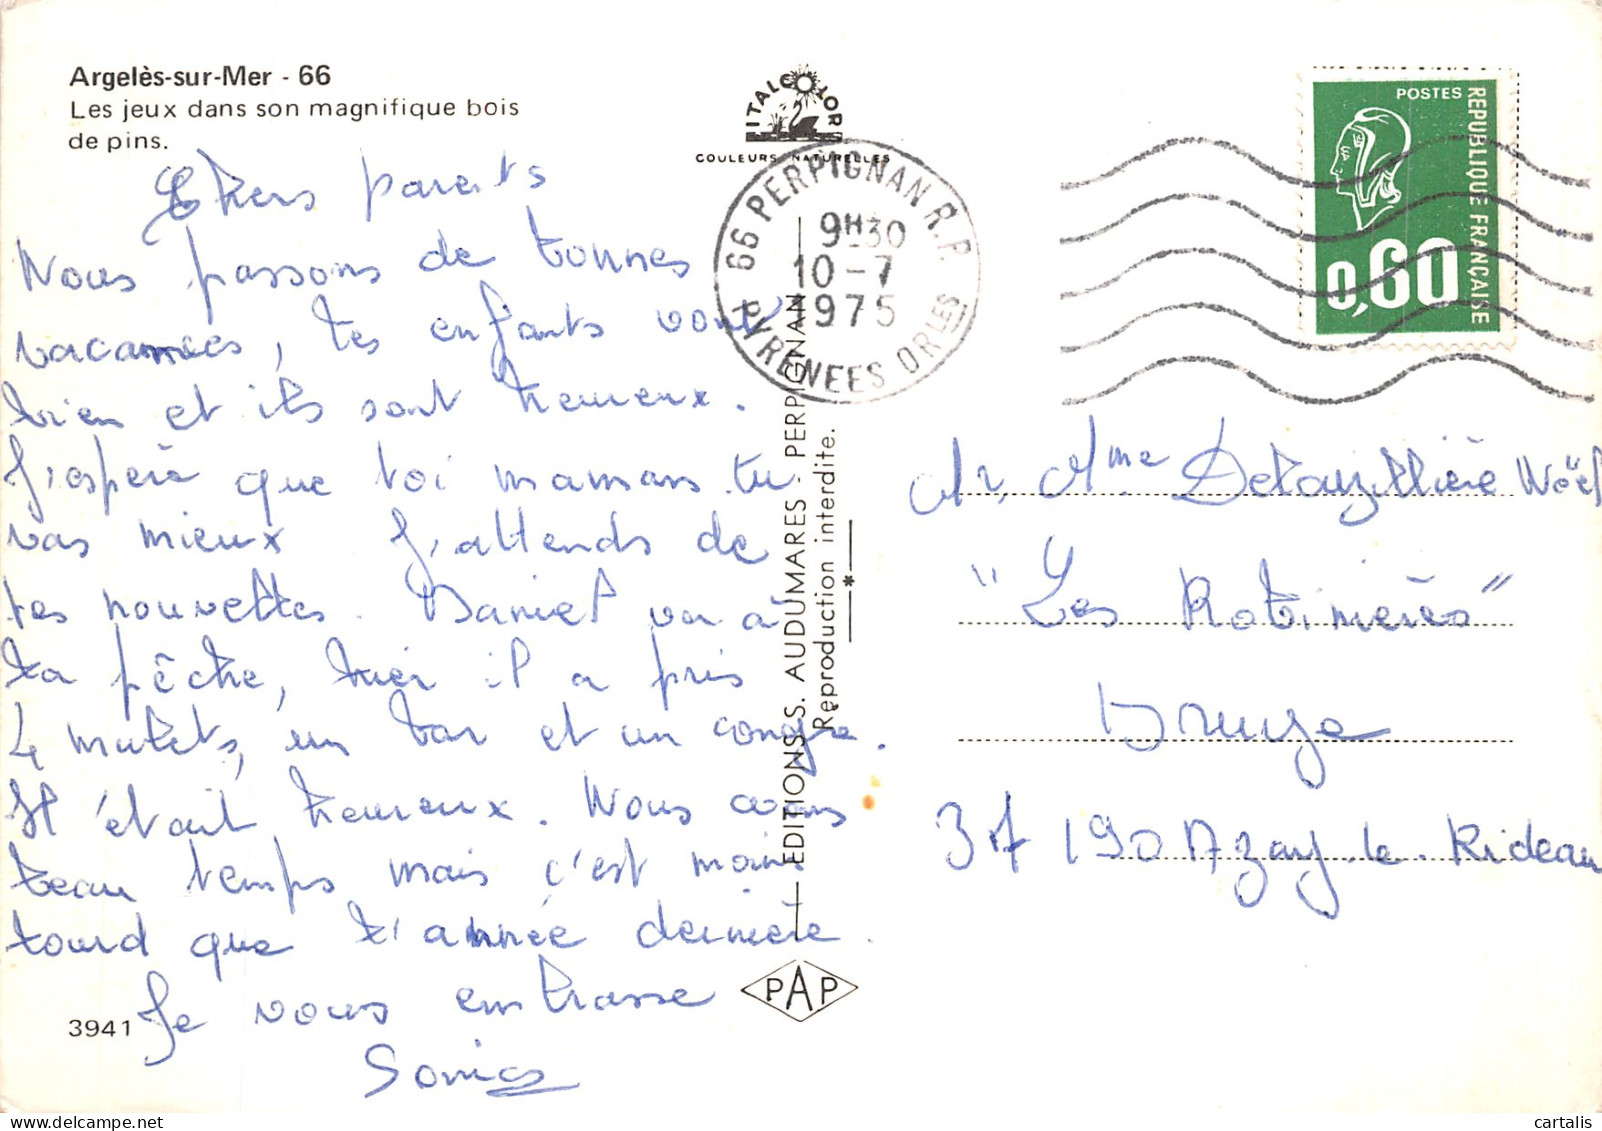 Argelès-sur-Mer - 66
Les jeux dans son magnifique bois
de pins.
ITALCOLOR
COULEURS NATURELLES
66 PERPIGNAN R.P.
9H30
10-7
1975
PYRENEES ORLES
POSTES
REPUBLIQUE FRANÇAISE
0,60
Chers parents
Nous passons de bonnes
vacances, les enfants vont
bien et ils sont heureux.
J'espère que toi maman tu
vas mieux J'attends de
tes nouvelles. Daniel va à
la pêche, hier il a pris
4 mulets, un bar et un congre.
Il était heureux. Nous avons
beau temps mais c'est moins
lourd que l'année dernière.
Je vous embrasse
Sonia
3941
EDITIONS S. AUDUMARES - PERPIGNAN
Reproduction interdite.
PAP
Mr, Mme Noël
"Les Robinières"
Druye
37 190 Azay-le-Rideau
cartalis
delcampe.net